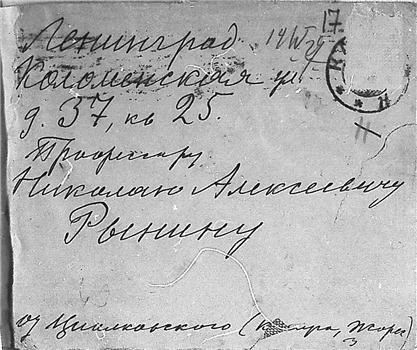 Ленинград
Коломенская ул
д. 37, кв 25.
Профессору
Николаю Алексеевичу
Рынину
от Циолковского (Калуга, Жорес 3)